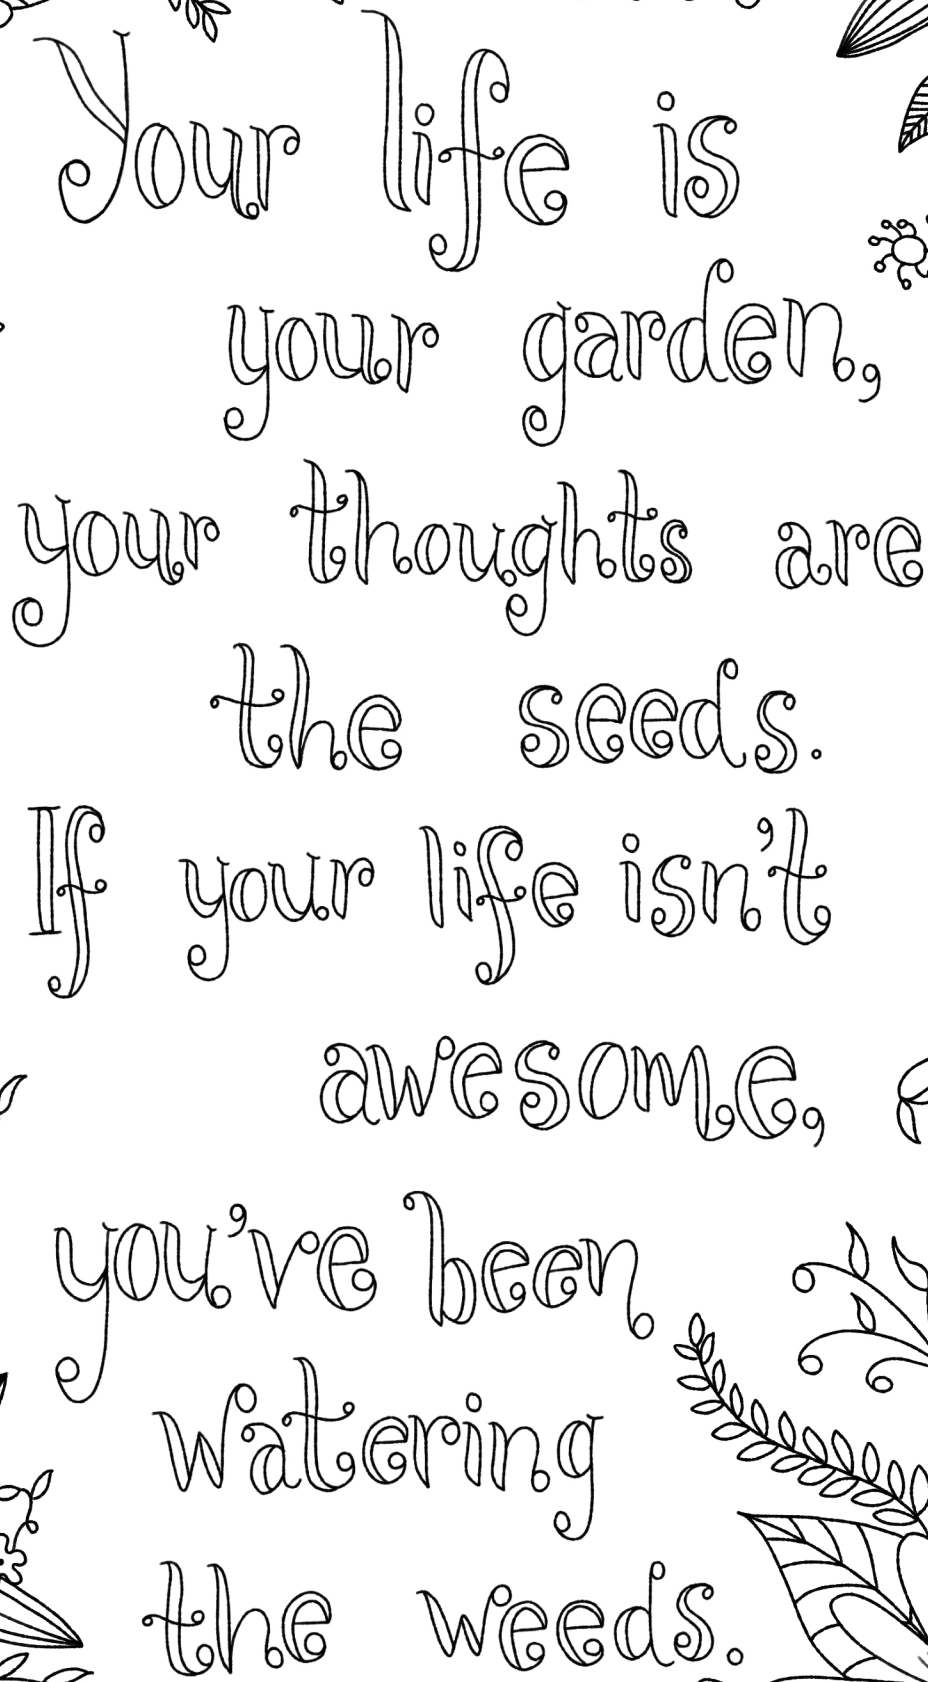 Your life is
your garden,
your thoughts are
the seeds.
If your life isn't
awesome,
you've been
watering
the weeds.